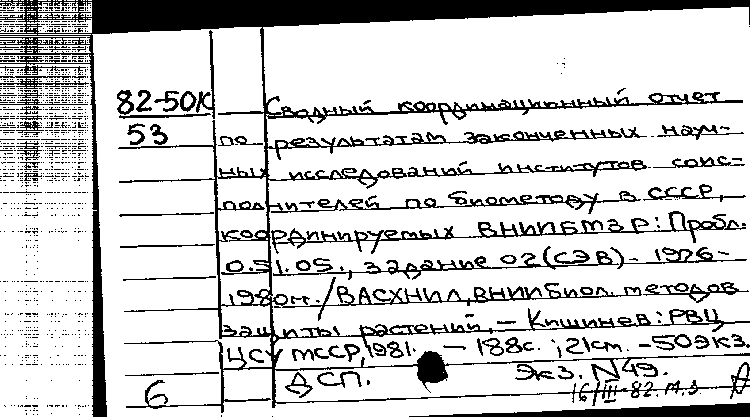 82-50К Сводный координационный отчет
53 по результатам законченных науч-
ных исследований институтов соис-
полнителей по биометоду в СССР,
координируемых ВНИИБМЗР: Пробл.
0.51.05., задание 02 (СЭВ). - 1976-
1980гг. / ВАСХНИЛ, ВНИИ биол. методов
защиты растений, - Кишинев: РВЦ
ЦСУ МССР, 1981. - 188с.; 21см. - 50экз.
ДСП. Экз. N49.
6 16/III-82. М.З.